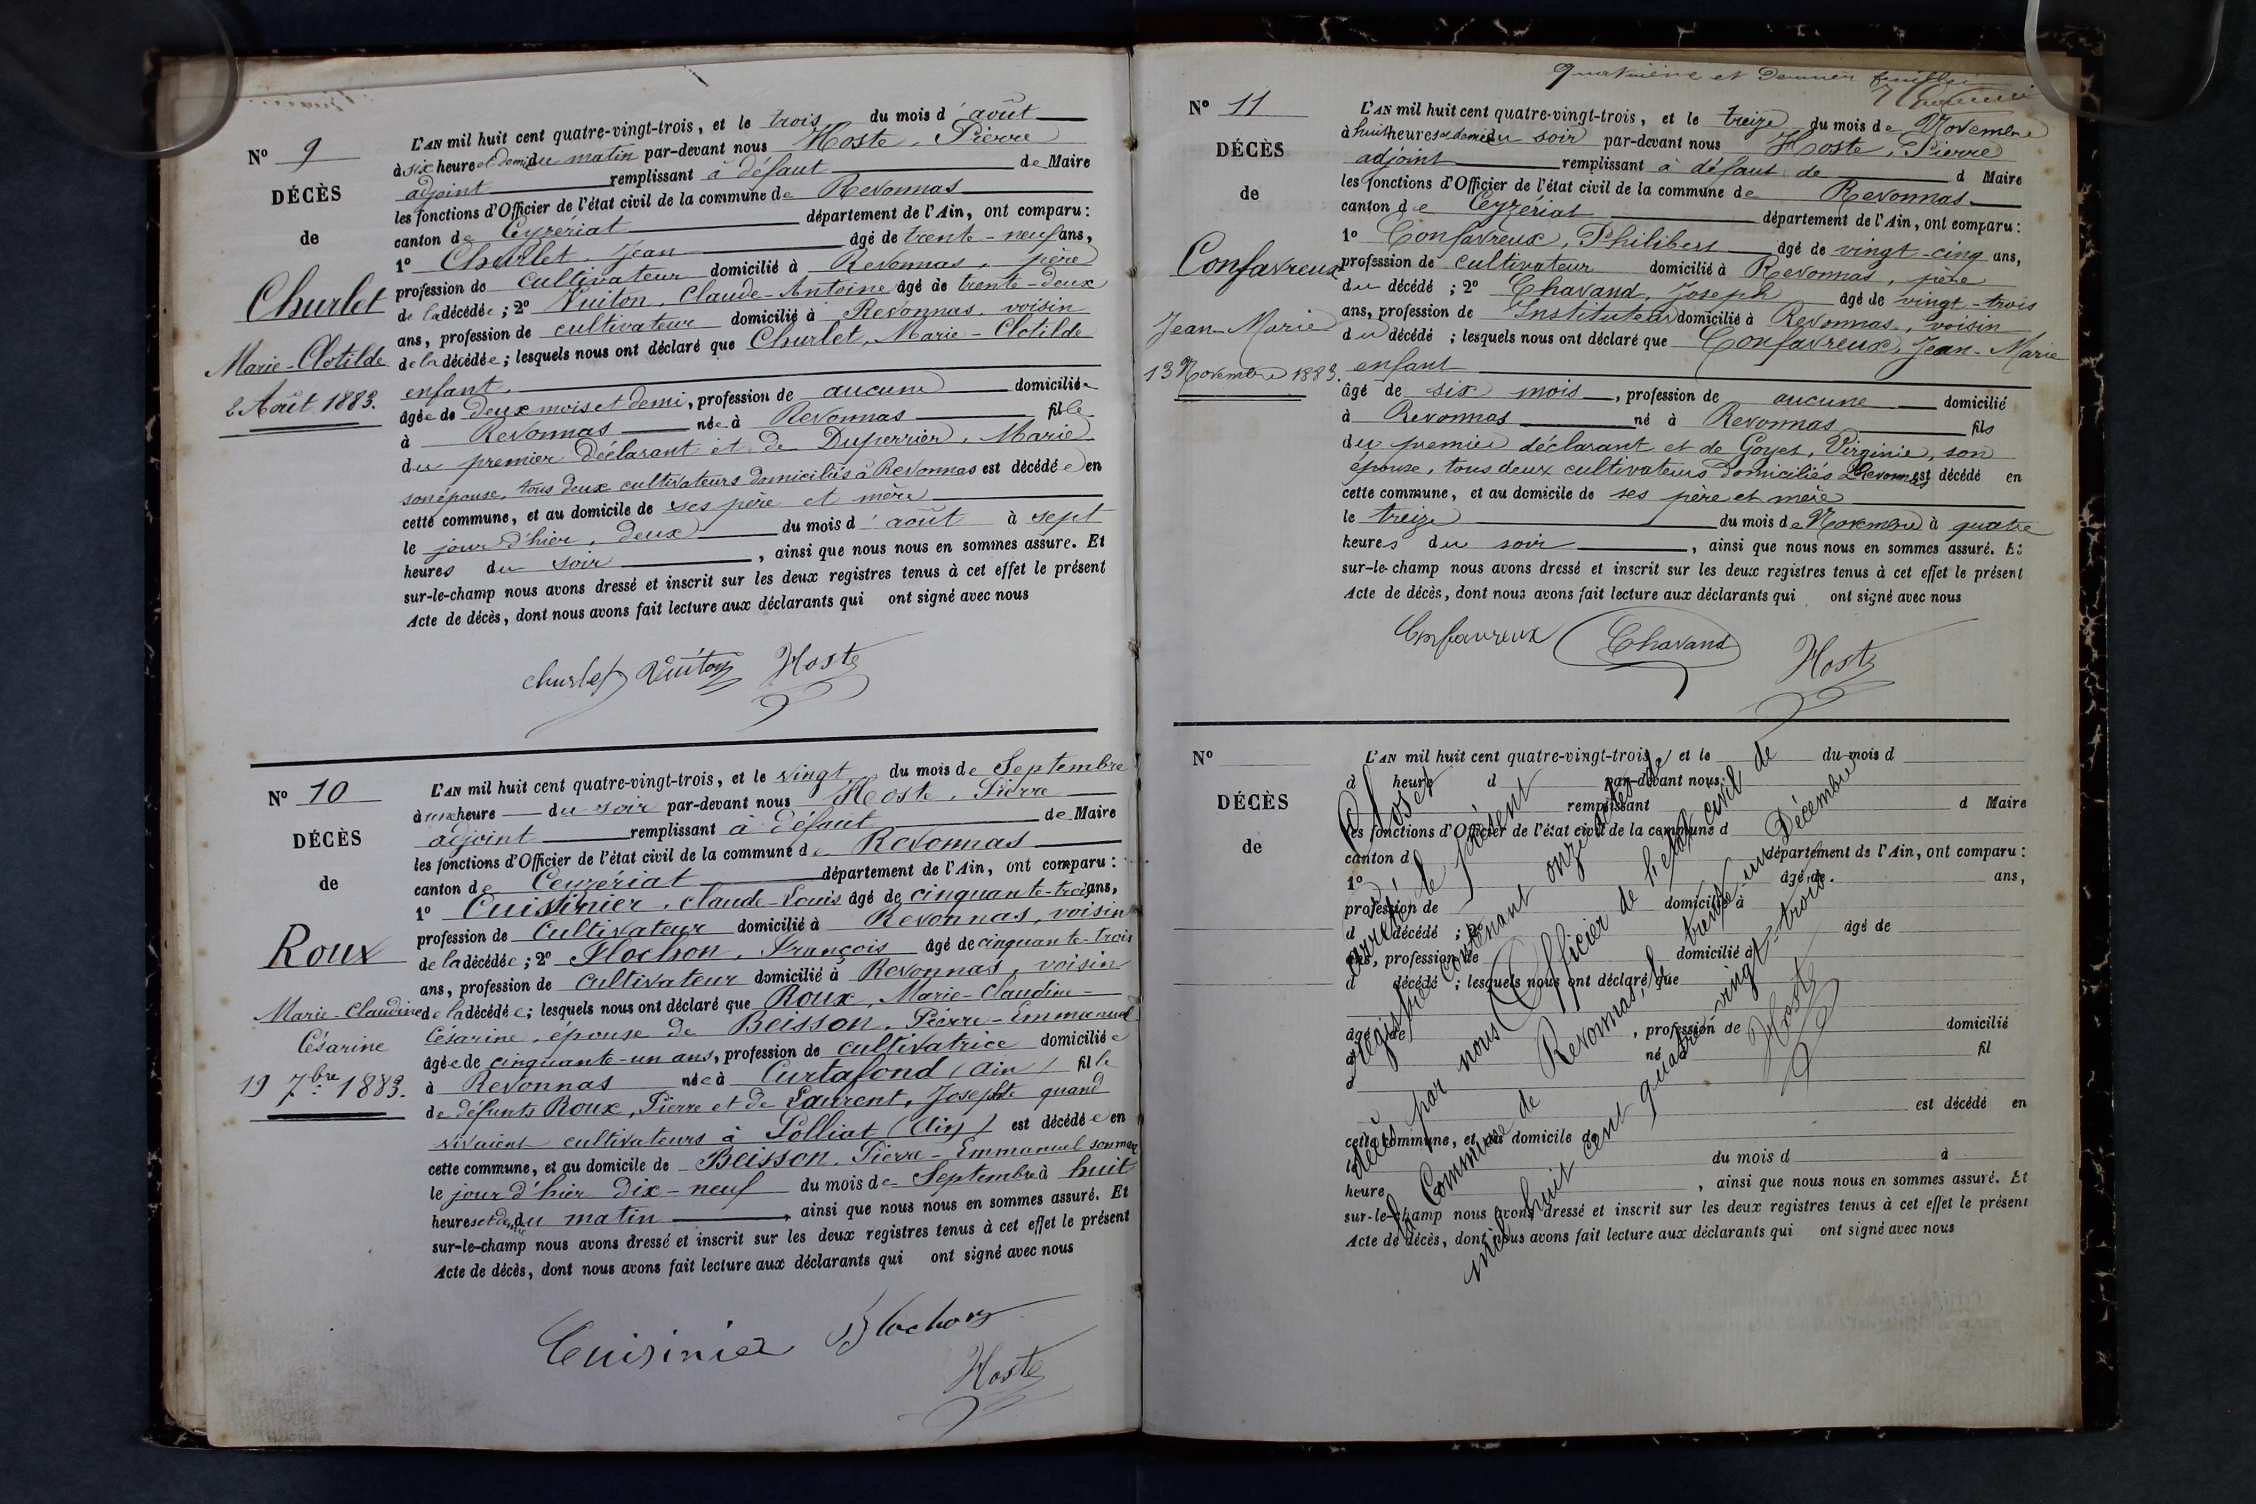 N° 9
DÉCÈS
de
Churlet
Marie-Clotilde
2 Août 1883.
L'AN mil huit cent quatre-vingt-trois, et le trois du mois d'août
à six heures et demie du matin par-devant nous Hoste, Pierre
adjoint remplissant à défaut de Maire
les fonctions d'Officier de l'état civil de la commune de Revonnas
canton de Ceyzériat département de l'Ain, ont comparu :
1° Churlet, Jean âgé de trente-neuf ans,
profession de cultivateur domicilié à Revonnas, père
de la décédée ; 2° Vuiton, Claude-Antoine âgé de trente-deux
ans, profession de cultivateur domicilié à Revonnas voisin
de la décédée ; lesquels nous ont déclaré que Churlet, Marie-Clotilde
enfant.
âgée de deux mois et demi, profession de aucune domiciliée
à Revonnas née à Revonnas fille
du premier déclarant et de Duperrier, Marie
son épouse, tous deux cultivateurs domiciliés à Revonnas est décédée en
cette commune, et au domicile de ses père et mère
le jour d'hier, deux du mois d'août à sept
heures du soir, ainsi que nous nous en sommes assuré. Et
sur-le-champ nous avons dressé et inscrit sur les deux registres tenus à cet effet le présent
Acte de décès, dont nous avons fait lecture aux déclarants qui ont signé avec nous
churlet Vuiton Hoste
N° 10
DÉCÈS
de
Roux
Marie-Claudine
Césarine
19 7bre 1883.
L'AN mil huit cent quatre-vingt-trois, et le vingt du mois de Septembre
à une heure du soir par-devant nous Hoste, Pierre
adjoint remplissant à défaut de Maire
les fonctions d'Officier de l'état civil de la commune de Revonnas
canton de Ceyzériat département de l'Ain, ont comparu :
1° Cuisinier, Claude-Louis âgé de cinquante-trois ans,
profession de cultivateur domicilié à Revonnas, voisin
de la décédée ; 2° Flochon, François âgé de cinquante-trois
ans, profession de cultivateur domicilié à Revonnas, voisin
de la décédée ; lesquels nous ont déclaré que Roux, Marie-Claudine-
Césarine, épouse de Beisson, Pierre-Emmanuel
âgée de cinquante-un ans, profession de cultivatrice domiciliée
à Revonnas née à Curtafond (Ain) fille
de défunts Roux, Pierre et de Laurent, Josephte quand
vivaient cultivateurs à Polliat (Ain) est décédée en
cette commune, et au domicile de Beisson, Pierre-Emmanuel son mari
le jour d'hier dix-neuf du mois de Septembre à huit
heures et demie du matin, ainsi que nous nous en sommes assuré. Et
sur-le-champ nous avons dressé et inscrit sur les deux registres tenus à cet effet le présent
Acte de décès, dont nous avons fait lecture aux déclarants qui ont signé avec nous
Cuisinier Flochon
Hoste
quatrième et dernier feuillet
N° 11
DÉCÈS
de
Confavreux
Jean-Marie
13 Novembre 1883.
L'AN mil huit cent quatre-vingt-trois, et le treize du mois de Novembre
à huit heures et demie du soir par-devant nous Hoste, Pierre
adjoint remplissant à défaut de d Maire
les fonctions d'Officier de l'état civil de la commune de Revonnas
canton de Ceyzériat département de l'Ain, ont comparu :
1° Confavreux, Philibert âgé de vingt-cinq ans,
profession de cultivateur domicilié à Revonnas, père
du décédé ; 2° Chavand, Joseph âgé de vingt-trois
ans, profession de Instituteur domicilié à Revonnas, voisin
du décédé ; lesquels nous ont déclaré que Confavreux, Jean-Marie
enfant
âgé de six mois, profession de aucune domicilié
à Revonnas né à Revonnas fils
du premier déclarant et de Goyet, Virginie, son
épouse, tous deux cultivateurs domiciliés Revonnas est décédé en
cette commune, et au domicile de ses père et mère
le treize du mois de Novembre à quatre
heures du soir, ainsi que nous nous en sommes assuré. Et
sur-le-champ nous avons dressé et inscrit sur les deux registres tenus à cet effet le présent
Acte de décès, dont nous avons fait lecture aux déclarants qui ont signé avec nous
Confavreux Chavand Hoste
N°
DÉCÈS
de
L'AN mil huit cent quatre-vingt-trois, et le du mois d
d heure d par-devant nous
remplissant d Maire
les fonctions d'Officier de l'état civil de la commune d
canton d département de l'Ain, ont comparu :
1° âgé de ans,
profession de domicilié à
d décédé ; 2° âgé de
ans, profession de domicilié à
d décédé ; lesquels nous ont déclaré que
âgé de , profession de domicilié
à né à fil
d
est décédé en
cette commune, et au domicile de
le du mois d à
heure , ainsi que nous nous en sommes assuré. Et
sur-le-champ nous avons dressé et inscrit sur les deux registres tenus à cet effet le présent
Acte de décès, dont nous avons fait lecture aux déclarants qui ont signé avec nous
Clos et
arrêté le présent
registre contenant onze actes de
décès par nous Officier de l'état civil de
la Commune de Revonnas, le trente-un Décembre
mil huit cent quatre-vingt-trois
Hoste